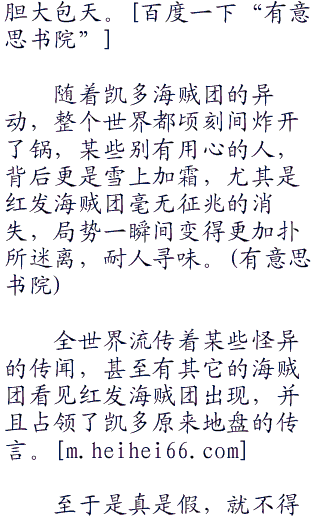 胆大包天。[百度一下“有意
思书院”]
随着凯多海贼团的异
动，整个世界都顷刻间炸开
了锅，某些别有用心的人，
背后更是雪上加霜，尤其是
红发海贼团毫无征兆的消
失，局势一瞬间变得更加扑
所迷离，耐人寻味。(有意思
书院)
全世界流传着某些怪异
的传闻，甚至有其它的海贼
团看见红发海贼团出现，并
且占领了凯多原来地盘的传
言。[m.heihei66.com]
至于是真是假，就不得